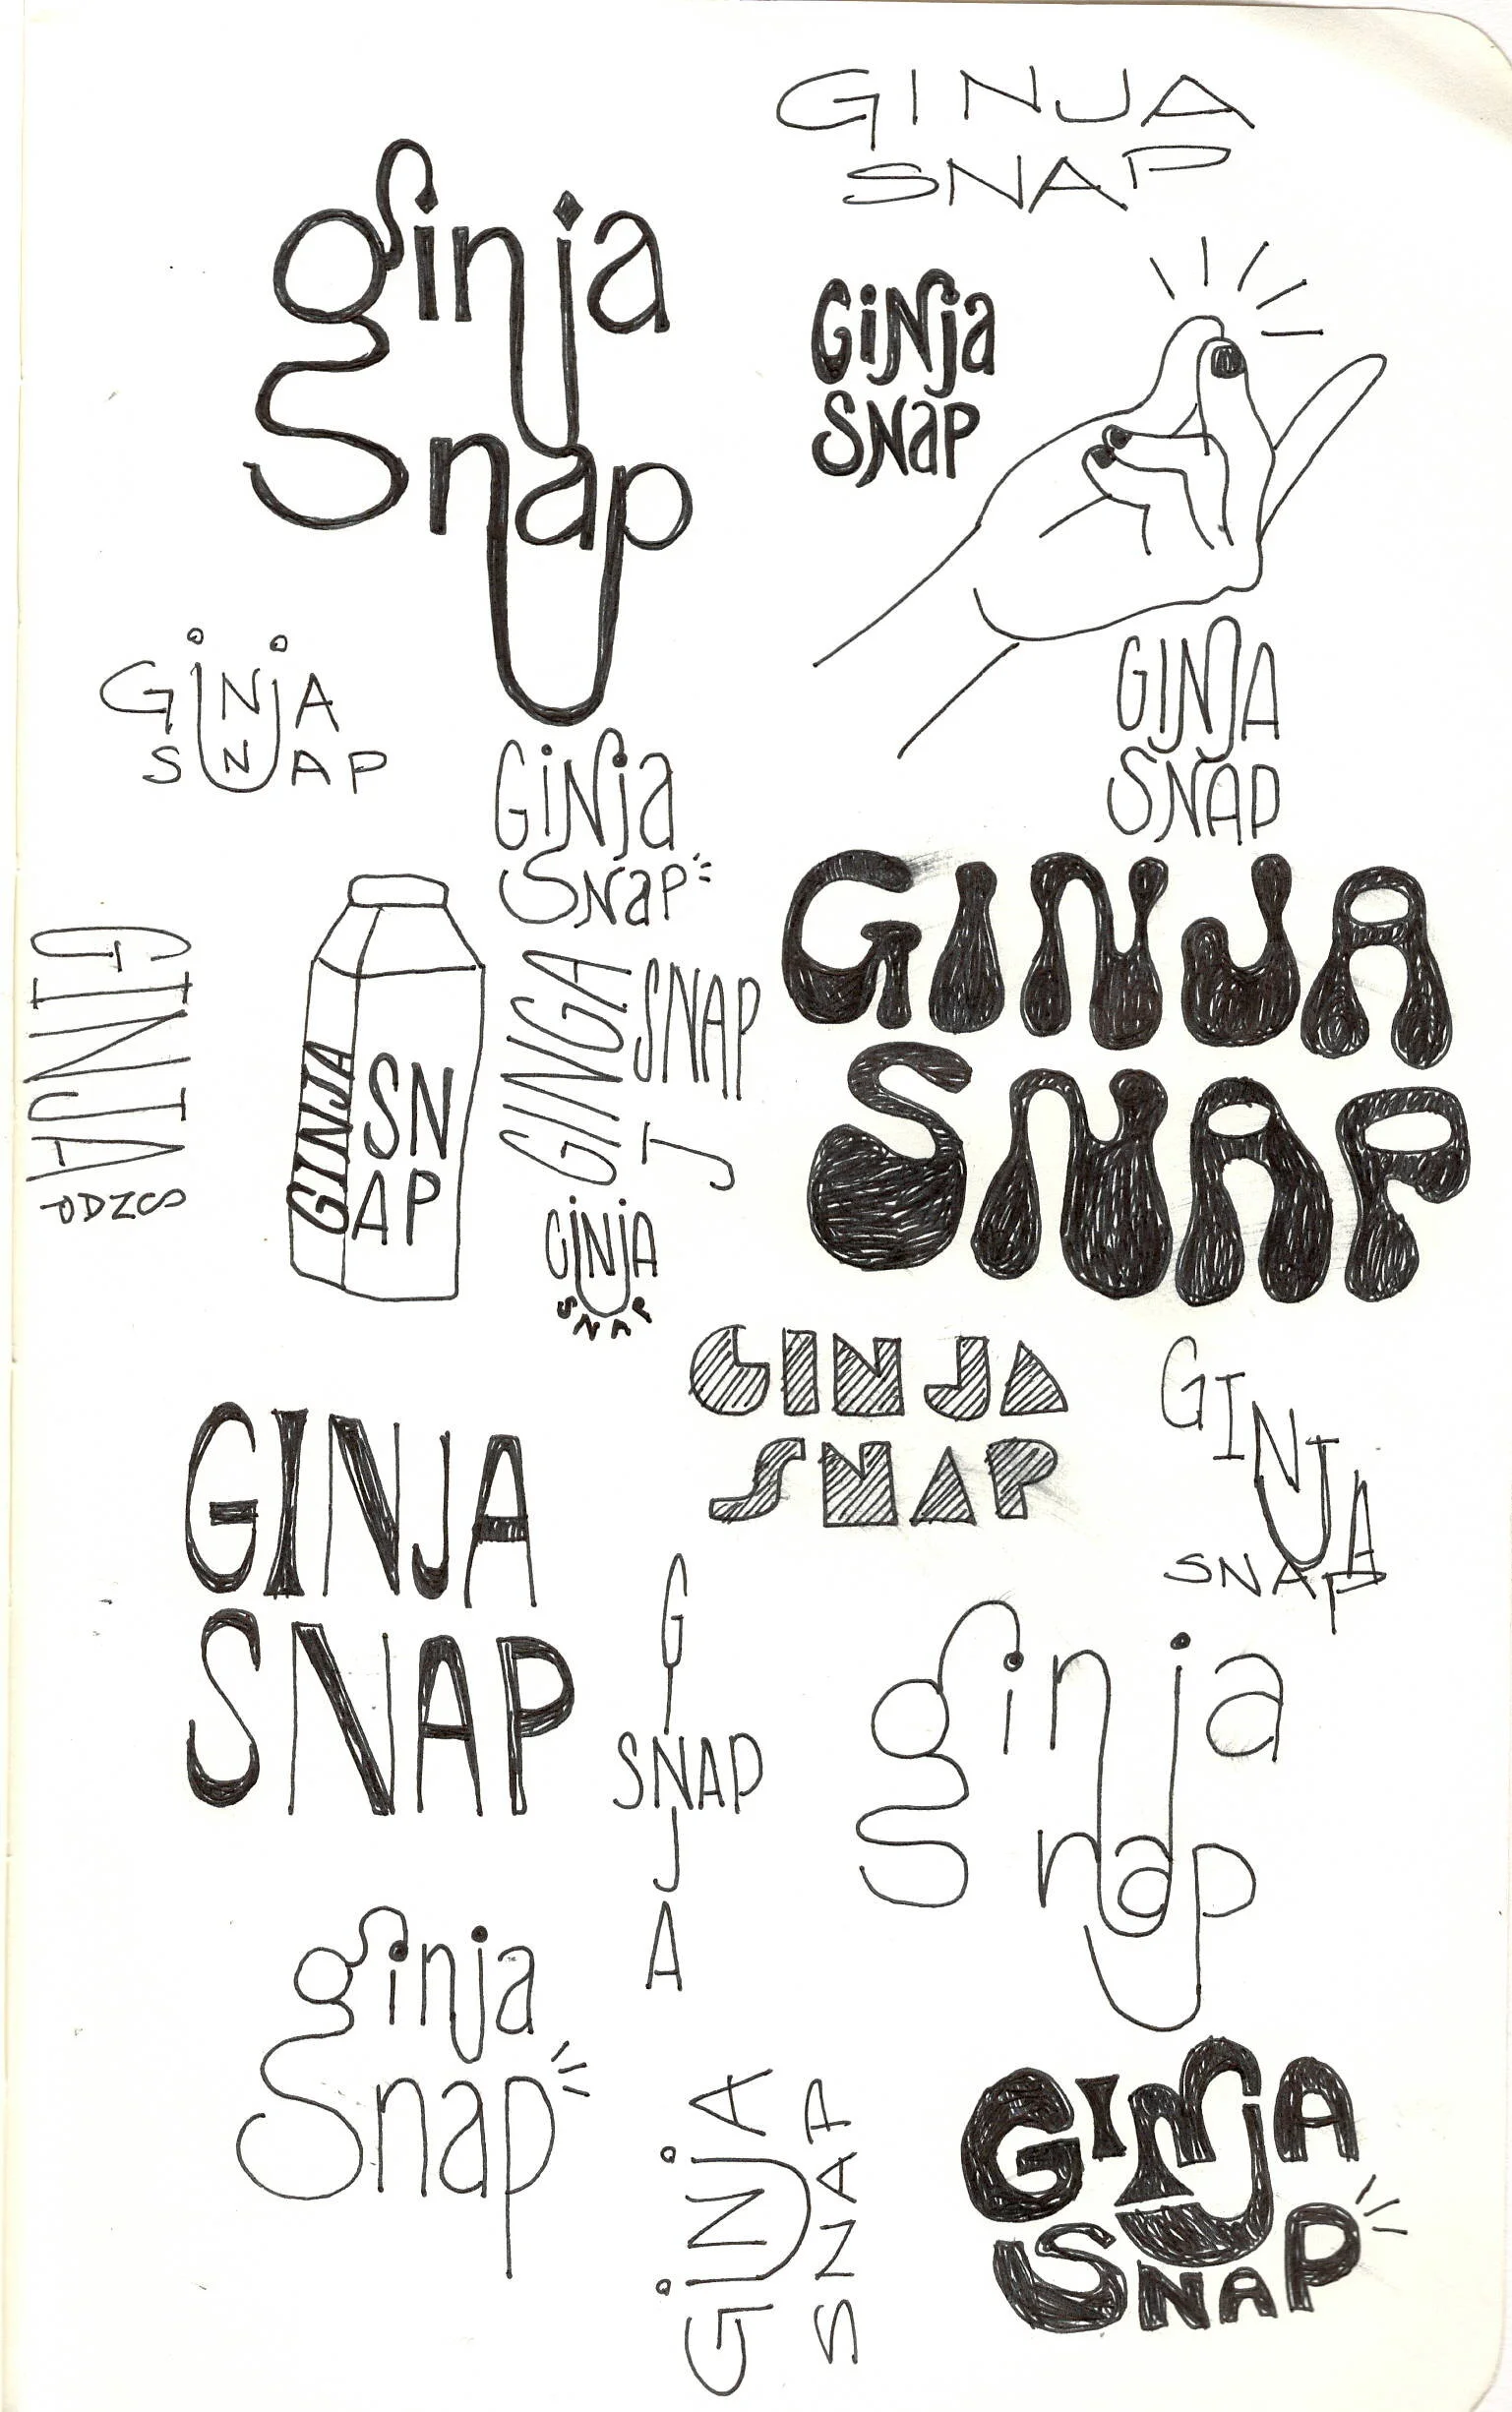 GINJA
SNAP
ginja
Snap
GiNja
SNaP
GiNjA
SNAP
GINJA
SNAP
GiNja
SNaP
GINJA
SNAP
GINJA
SNAP
GINJA
SN
AP
GINGA
SNAP
J
GINJA
SNAP
GINJA
SNAP
GINJA
SNAP
GINJA
SNAP
GINJA
SNAP
G
I
SNAP
J
A
ginja
snap
ginja
Snap
GiNjA
SNAP
GINJA
SNAP